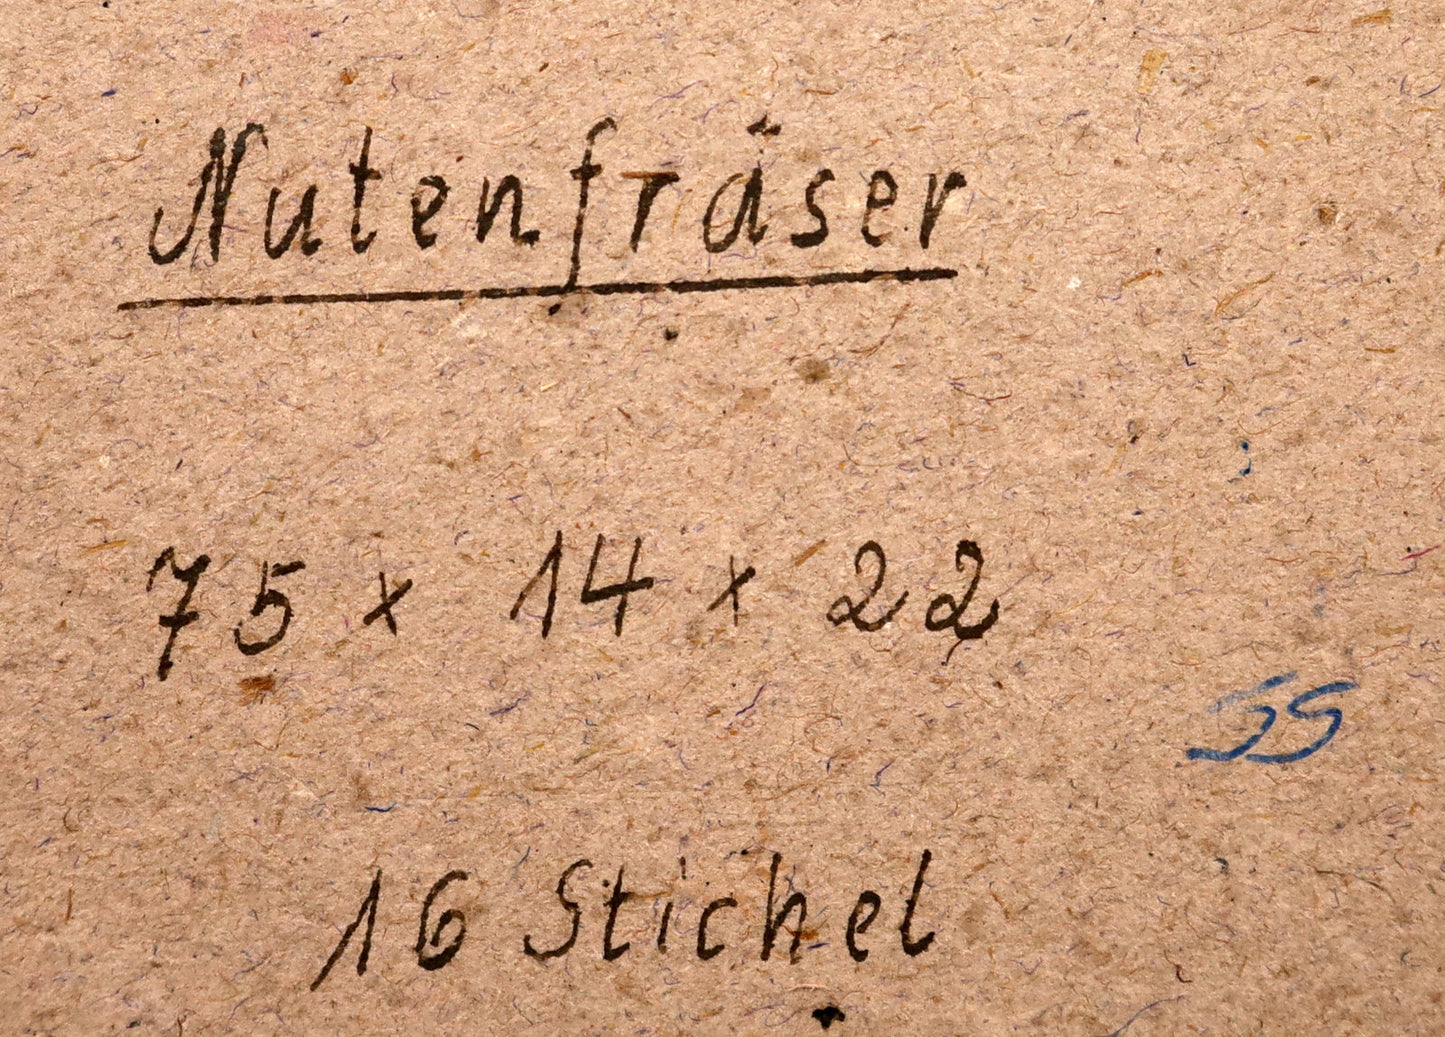 Nutenfräser
75 x 14 x 22
SS
16 Stichel